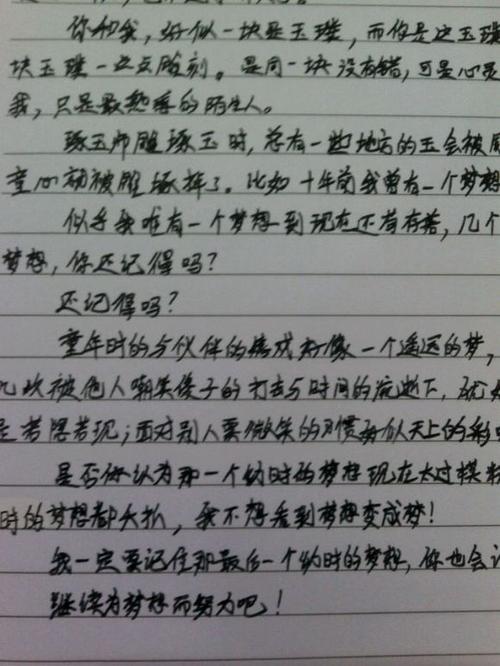 你和我，好似一块是玉璞，而你是这玉璞
块玉璞一点点雕刻。是同一块没有错，可是心灵
我，只是最熟悉的陌生人。
琢玉师雕琢玉时，总有一些地方的玉会被
童心都被雕琢掉了。比如十年前我曾有一个梦想
似乎我唯有一个梦想到现在还尚存着，几个
梦想，你还记得吗？
还记得吗？
童年时的与伙伴的 好像一个遥远的梦，
次被他人嘲笑傻子的打击与时间的流逝下，
是若隐若现；面对别人要微笑的习惯好似天上的彩
是否你认为那一个幼时的梦想现在太过模糊
时的梦想都夭折，我不想看到梦想变成梦！
我一定要记住那最后一个幼时的梦想，你也会
继续为梦想而努力吧！